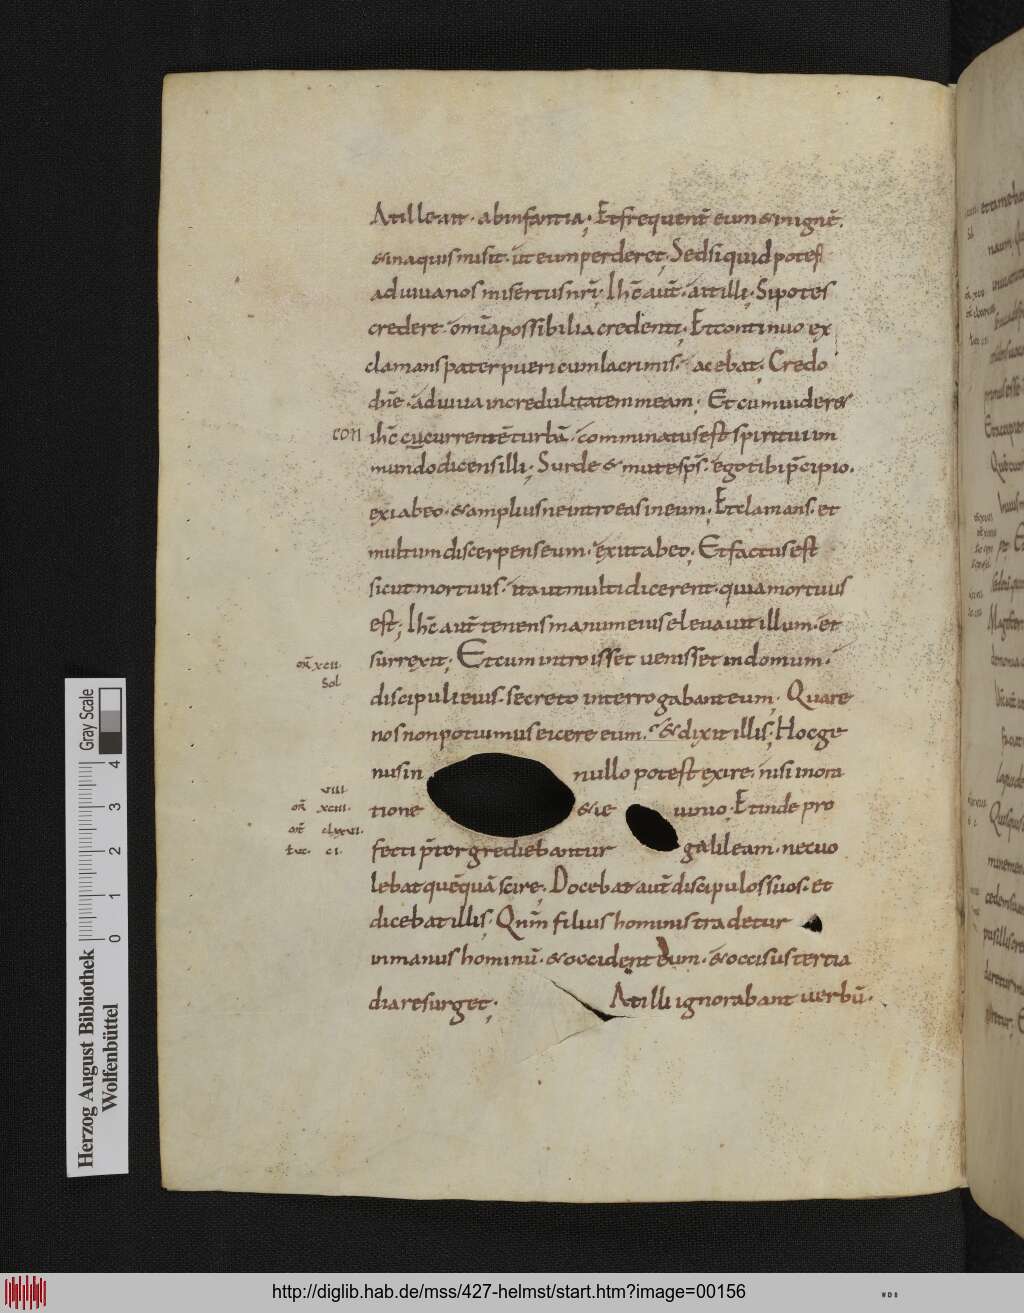 Atille ait · ab infantia ; Et frequent̄ eum & in ignē ·
& in aquis misit · ut eum perderet ; Sed si quid potes
adiuua nos misertus nr̄i ; Ihc̄ aut̄ · ait illi ; Si potes
credere · om̄ia possibilia credenti ; Et continuo ex
clamans pater pueri cum lacrimis · acebat ; Credo
dn̄e · adiuua incredulitatem meam ; Et cum uideret
con
ihc̄ cucurrentē turbā · comminatus est spiritui im
mundo dicens illi ; Surde & mute sps̄ · ego tibi p̄cipio ·
exi ab eo · & amplius ne introeas in eum ; Et clamans · et
multum discerpens eum · exiit ab eo ; Et factus est
sicut mortuus · ita ut multi dicerent · quia mortuus
est ; Ihc̄ aut̄ tenens manum eius eleuauit illum · et
surrexit ; Et cum introisset uenisset in domum ·
xcii
Sol
discipuli eius · secreto interrogabant eum ; Quare
nos non potuimus eicere eum · & dixit illis ; Hoc ge
nus in nullo potest exire · nisi in ora
tione & ie iunio ; Et inde pro
viii
xciii
clxxvi
luc · ci
fecti p̄ter grediebantur galileam · nec uo
lebat quēquā scire ; Docebat aut̄ discipulos suos · et
dicebat illis ; Qnm̄ filius hominis tradetur
in manus hominū · & occident eum · & occisus tertia
dia resurget ; At illi ignorabant uerbū ·
Herzog August Bibliothek
Wolfenbüttel
0 1 2 3 4
Gray Scale
http://diglib.hab.de/mss/427-helmst/start.htm?image=00156